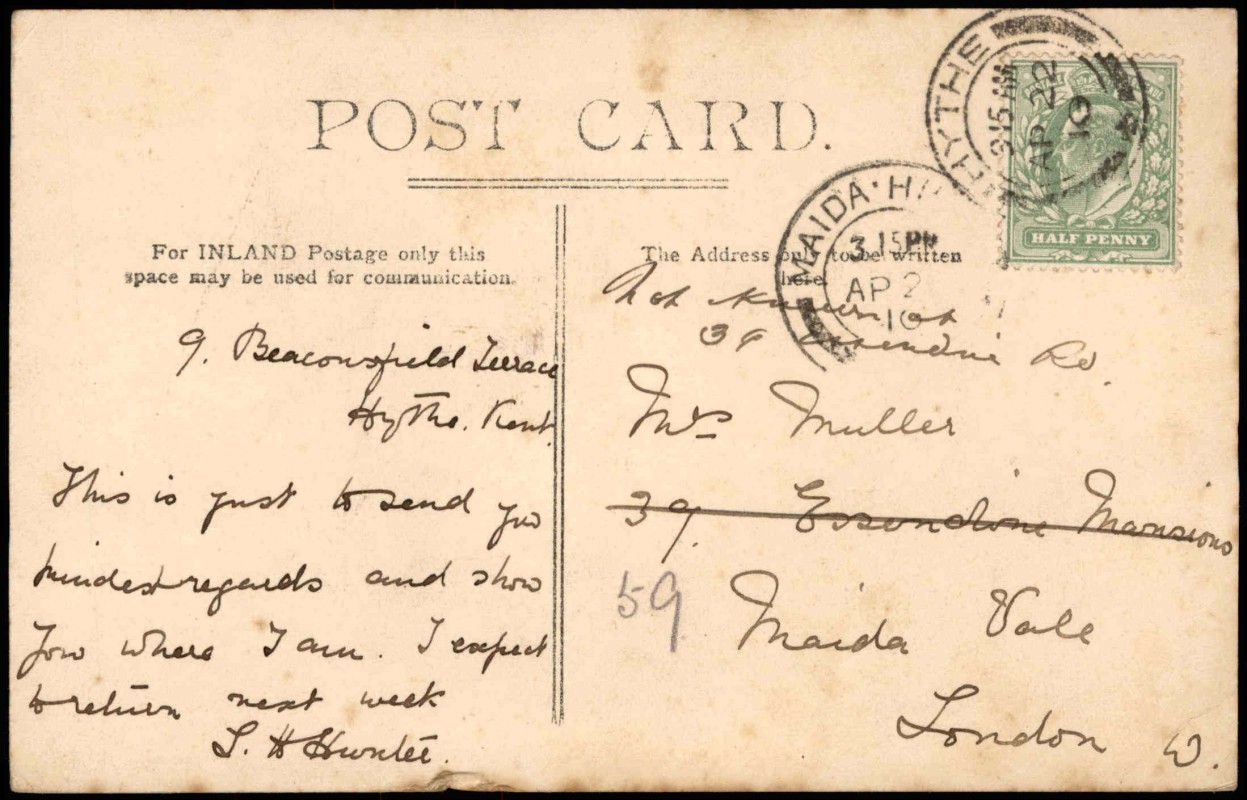 POST CARD.
For INLAND Postage only this
space may be used for communication.
The Address only to be written
here.
HYTHE
9 15 AM
AP 22
10
HALF PENNY
MAIDA·H
3.15PM
AP 2
10
9. Beaconsfield Terrace
Hythe. Kent.
This is just to send you
kindest regards and show
you where I am. I expect
to return next week
S. H Hunter.
Not known at
39 Essendine Rd.
Mrs Muller
39. Essendine Mansions
59 Maida Vale
London W.